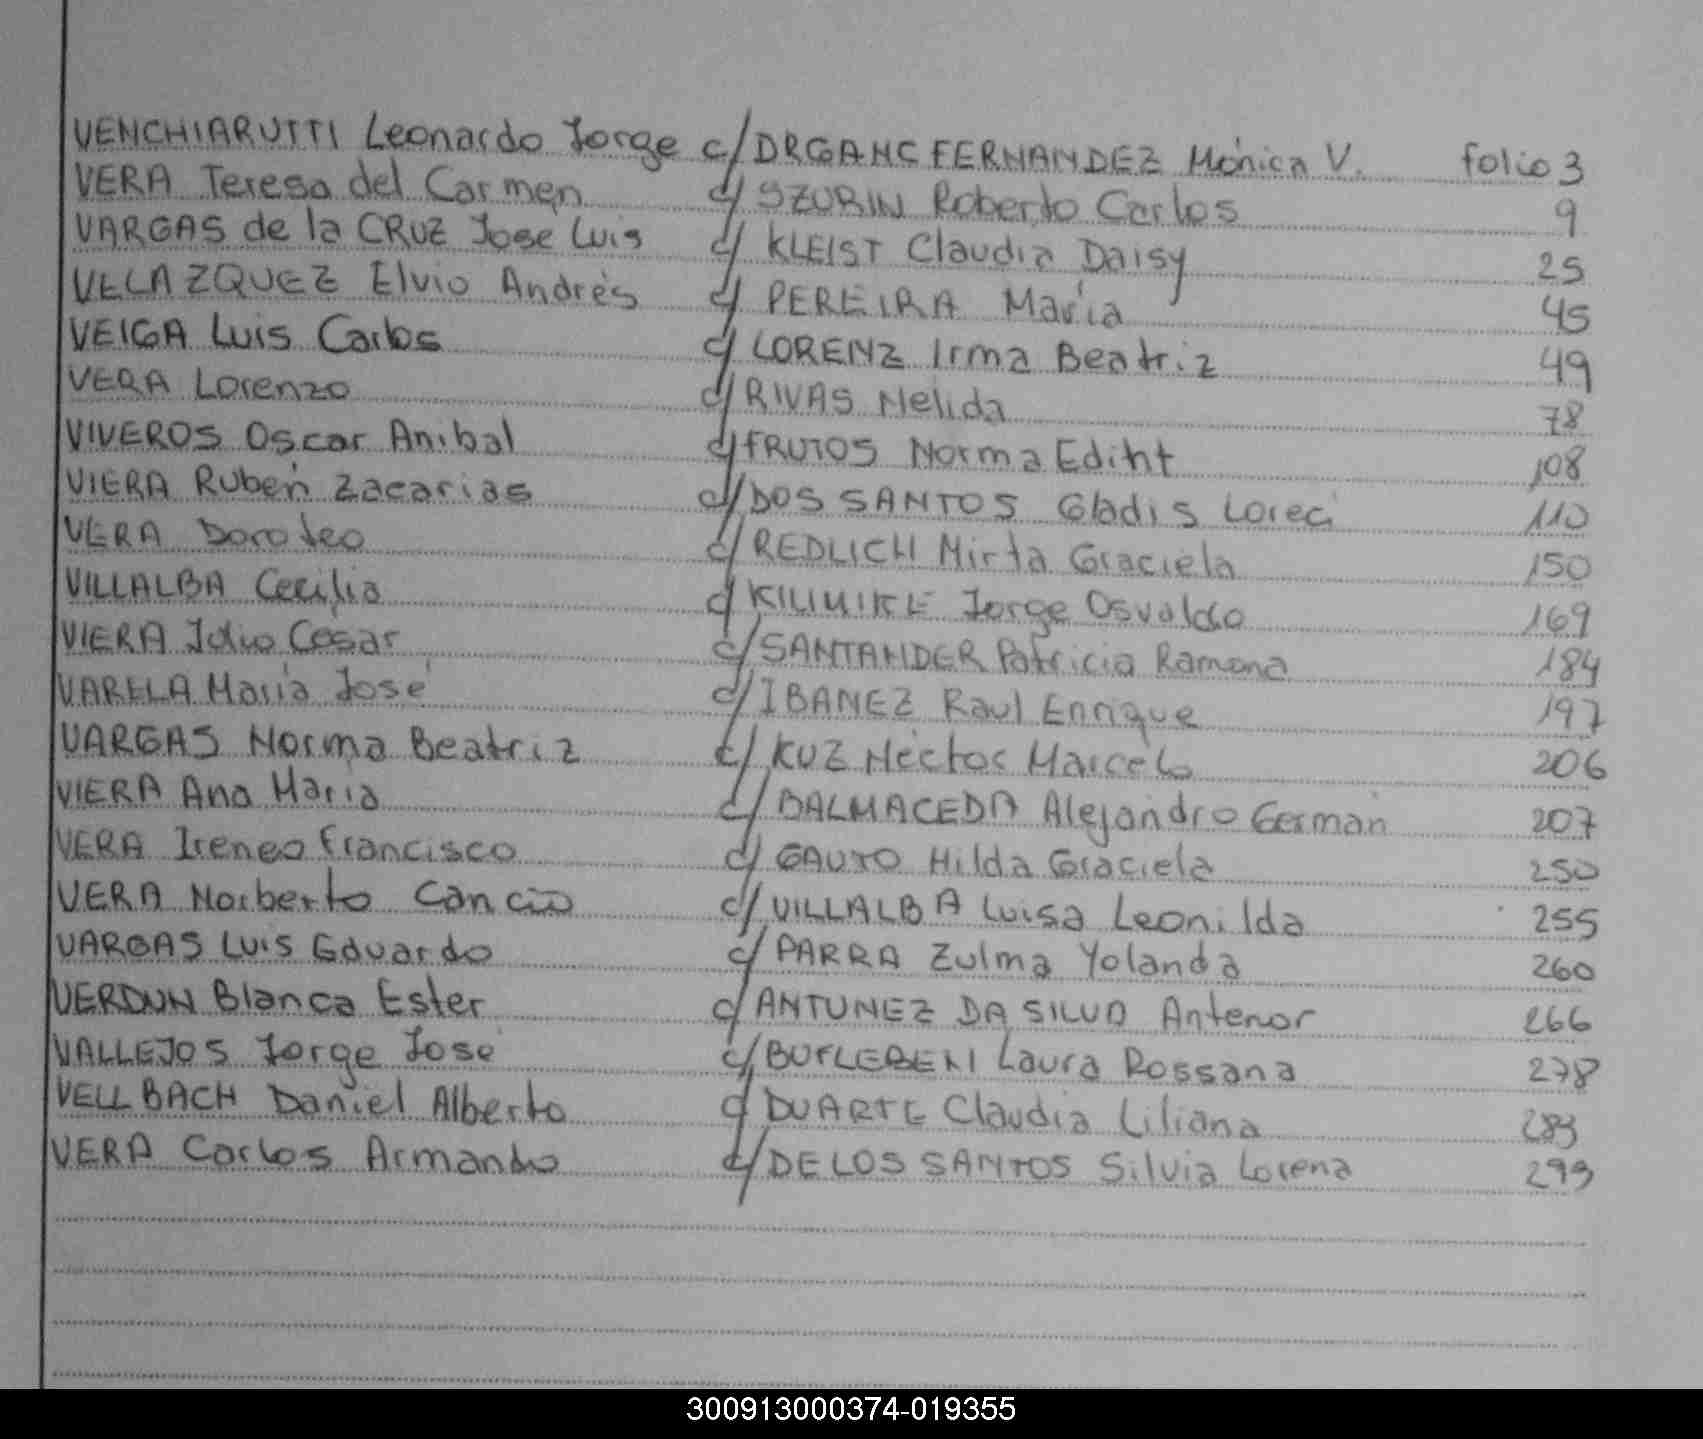 VENCHIARUTTI Leonardo Jorge c/ DRGANC FERNANDEZ Mónica V. folio 3
VERA Teresa del Carmen c/ SZURIN Roberto Carlos 9
VARGAS de la CRUZ Jose Luis c/ KLEIST Claudia Daisy 25
VELAZQUEZ Elvio Andrés c/ PEREIRA María 45
VEIGA Luis Carlos c/ LORENZ Irma Beatriz 49
VERA Lorenzo c/ RIVAS Nelida 78
VIVEROS Oscar Anibal c/ FRUTOS Norma Ediht 108
VIERA Rubén Zacarias c/ DOS SANTOS Gladis Loreci 110
VERA Doroteo c/ REDLICH Mirta Graciela 150
VILLALBA Cecilia c/ Jorge Osvaldo 169
VIERA Julio Cesar c/ SANTANDER Patricia Ramona 184
VARELA María José c/ IBANEZ Raul Enrique 197
VARGAS Norma Beatriz c/ KUZ Héctor Marcelo 206
VIERA Ana María c/ BALMACEDA Alejandro German 207
VERA Ireneo Francisco c/ GAUTO Hilda Graciela 250
VERA Norberto Cancio c/ VILLALBA Luisa Leonilda 255
VARGAS Luis Eduardo c/ PARRA Zulma Yolanda 260
VERDUN Blanca Ester c/ ANTUNEZ DA SILVA Antenor 266
VALLEJOS Jorge José c/ Laura Rossana 278
VELLBACH Daniel Alberto c/ DUARTE Claudia Liliana 283
VERA Carlos Armando c/ DE LOS SANTOS Silvia Lorena 293
300913000374-019355